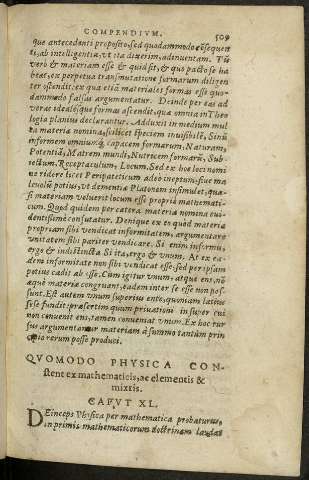 COMPENDIVM. 509
que antecedenti proposito, sed quodammodo consequen
ti, ab intelligentia, vt ita dixerim, adinuentam. Tū
verò & materiam esse & quid sit, & quo pacto se ha
beat, ex perpetua transmutatione formarum diligen
ter ostendit, ex qua etiam materiales formas esse quo-
dammodo falsas argumentatur. Deinde per eas ad
veras idealésque formas ascendit, qua omnia in Theo
logia planius declarantur. Adduxit in medium mul
ta materiæ nomina, scilicet speciem inuisibilē, Sinū
informem omniumq́; capacem formarum, Naturam,
Potentiā, Matrem mundi, Nutricem formarū, Sub-
iectum, Receptaculum, Locum. Sed ex hoc loci nomi
ne ridere licet Peripateticum adeo ineptum, siue ma
leuolū potius, vt dementiæ Platonem insimulet, qua-
si materiam voluerit locum esse propriè mathemati-
cum. Quod quidem per cætera materiæ nomina eui-
dentissimè confutatur. Denique ex eo quòd materia
propriam sibi vendicat informitatem, argumentare
vnitatem sibi pariter vendicare. Si enim informis,
ergo & indistincta. Si ita, ergo & vnum. At ex ea-
dem informitate non sibi vendicat esse, sed per ipsam
potius cadit ab esse. Cum igitur vnum, atque ens, nō
æquè materiæ congruant, eadem inter se esse non pos-
sunt. Est autem vnum superius ente, quoniam latius
se se fundit: præsertim quum priuationi in super cui
non conuenit ens, tamen conueniat vnum. Ex hoc rur
sus argumentantur materiam à summo tantùm prin
cipio rerum posse produci.
QVOMODO PHYSICA CON-
stent ex mathematicis, ac elementis &
mixtis.
CAPVT XL.
DEinceps Physica per mathematica probaturus,
in primis mathematicorum doctrinam laudat